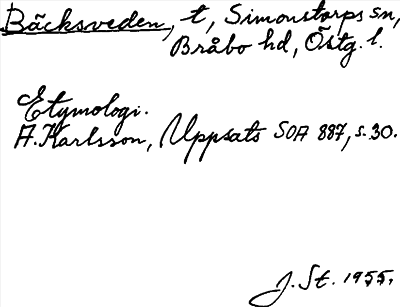 Bäcksveden, t, Simonstorps sn,
Bråbo hd, Östg. l.
Etymologi.
A. Karlsson, Uppsats SOA 887, s. 30.
J. St. 1955.